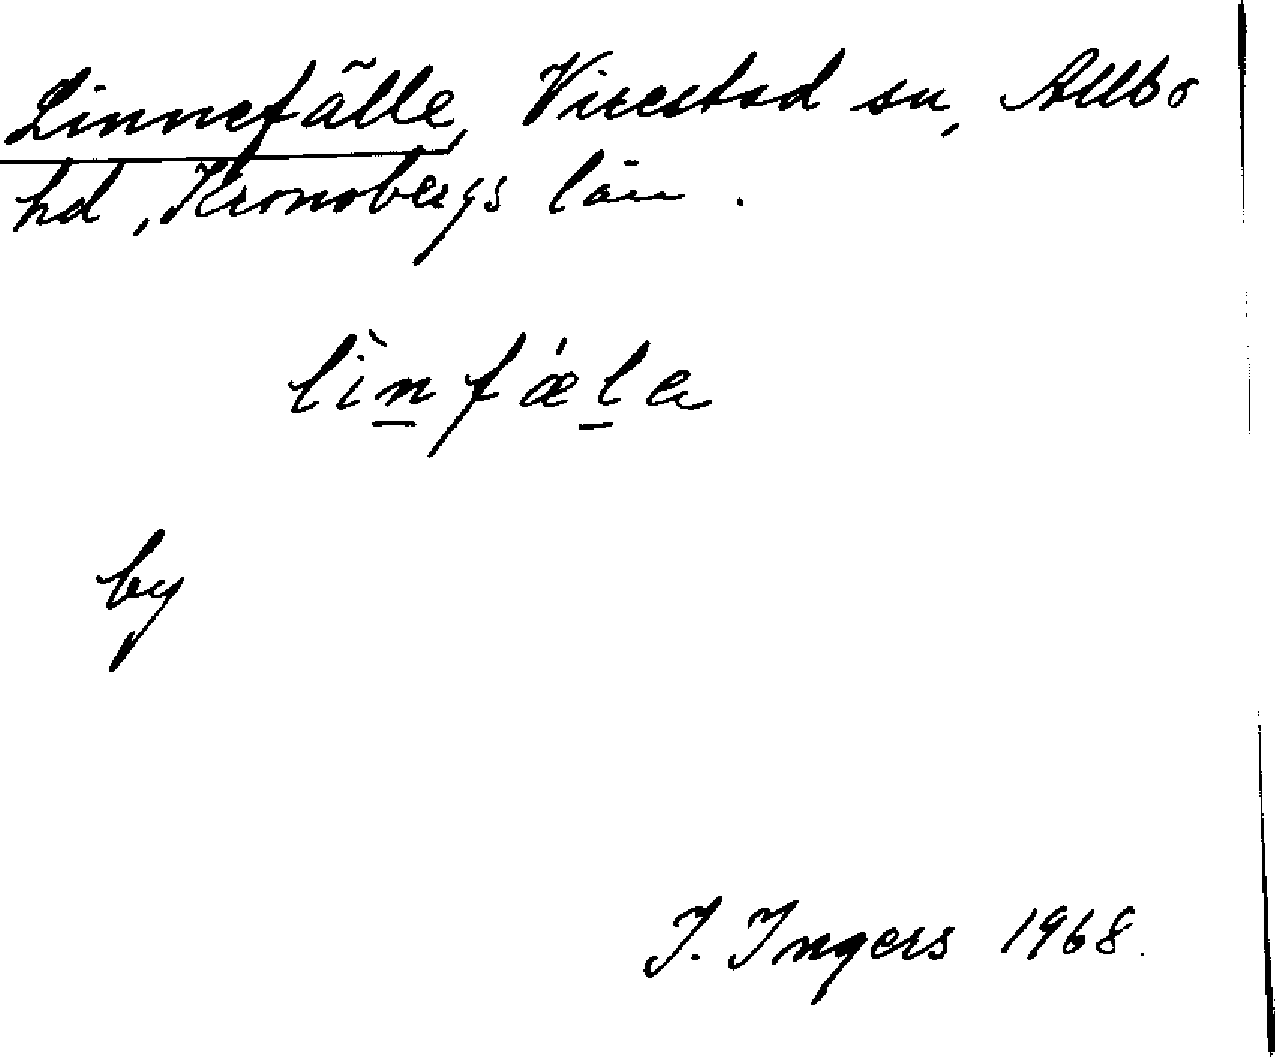 Linnefälle, Virestad sn, Allbo
hd, Kronobergs län.
lìn̲fǽl̲a
by
I. Ingers 1968.